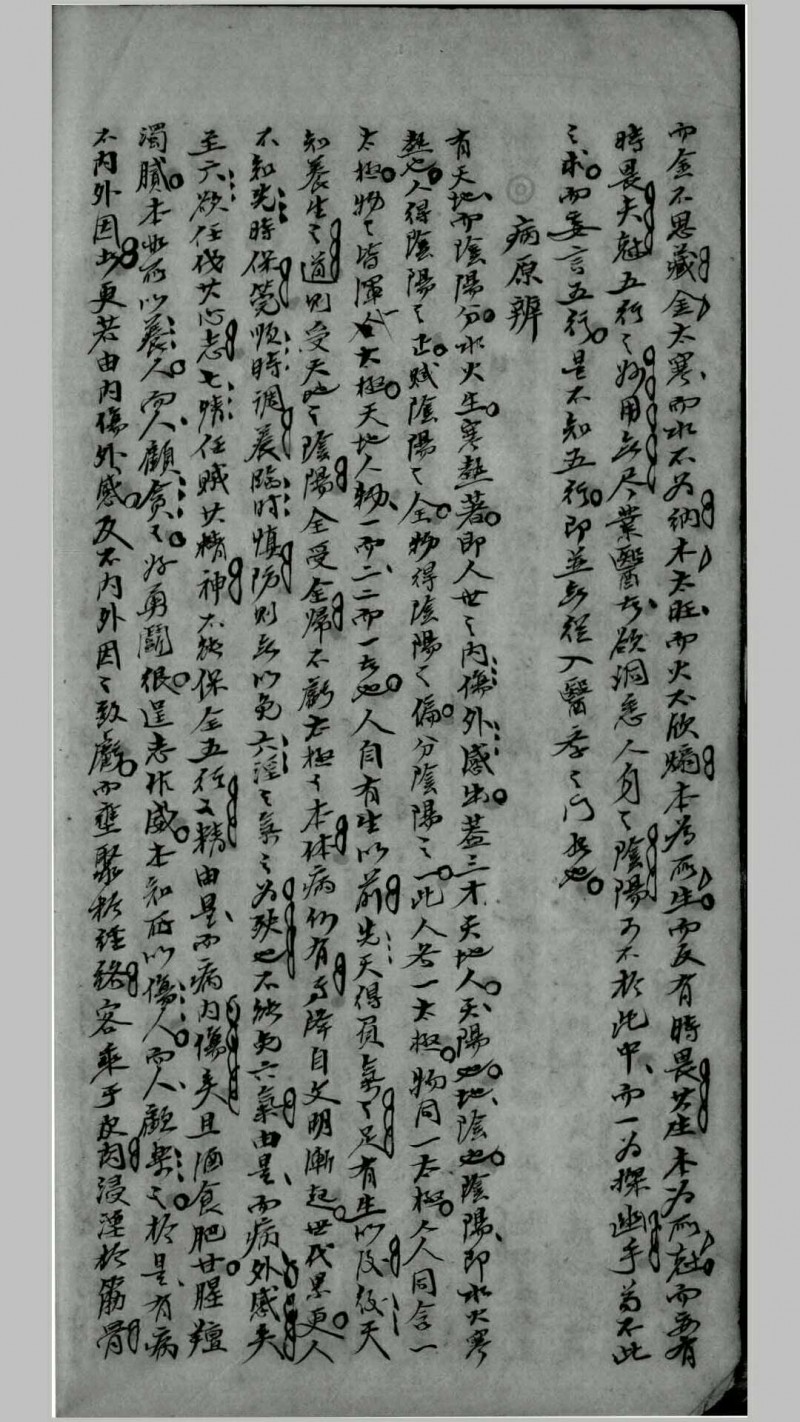 而金不思藏金太寒而水不為納木太旺而火不欣燏本為所生而反有時畏其生本為所尅而安有
時畏夫尅五行之妙用無尽業醫者欲洞悉人身之陰陽可不於此中而一為探幽乎苟不此
之求而妄言五行是不知五行即並無從入醫學之門者也
病原辨
有天地而陰陽分水火生寒熱著即人世之內傷外感出蓋三才天地人天陽也地陰也陰陽即水火寒
熱也人得陰陽之 賦陰陽之全物得陰陽之偏分陰陽之一此人各一太極物同一太極人人同含一
太極物之皆渾 太極天地人物一而二二而一者也人自有生以前先天得負氣之足有生以及後天
知養生之道則受天地之陰陽全受全歸不虧太極之本体病何有焉降自文明漸起世代累更人
不知先時保 順時調養臨時慎防則無以免六淫之氣之為殃也不能免六氣由是而病外感矣
至六欲任伐其心志七情任賊其精神不能保全五行之精由是而病內傷矣且酒食肥甘腥羶
濁膩本無所以養人而人顧貪之好勇鬬狠逞志作威本知所以傷人而人顧樂之於是有病
不內外因者更若由內傷外感及不內外因之致虧而壅聚於經絡客乘于皮肉浸淫於筋骨